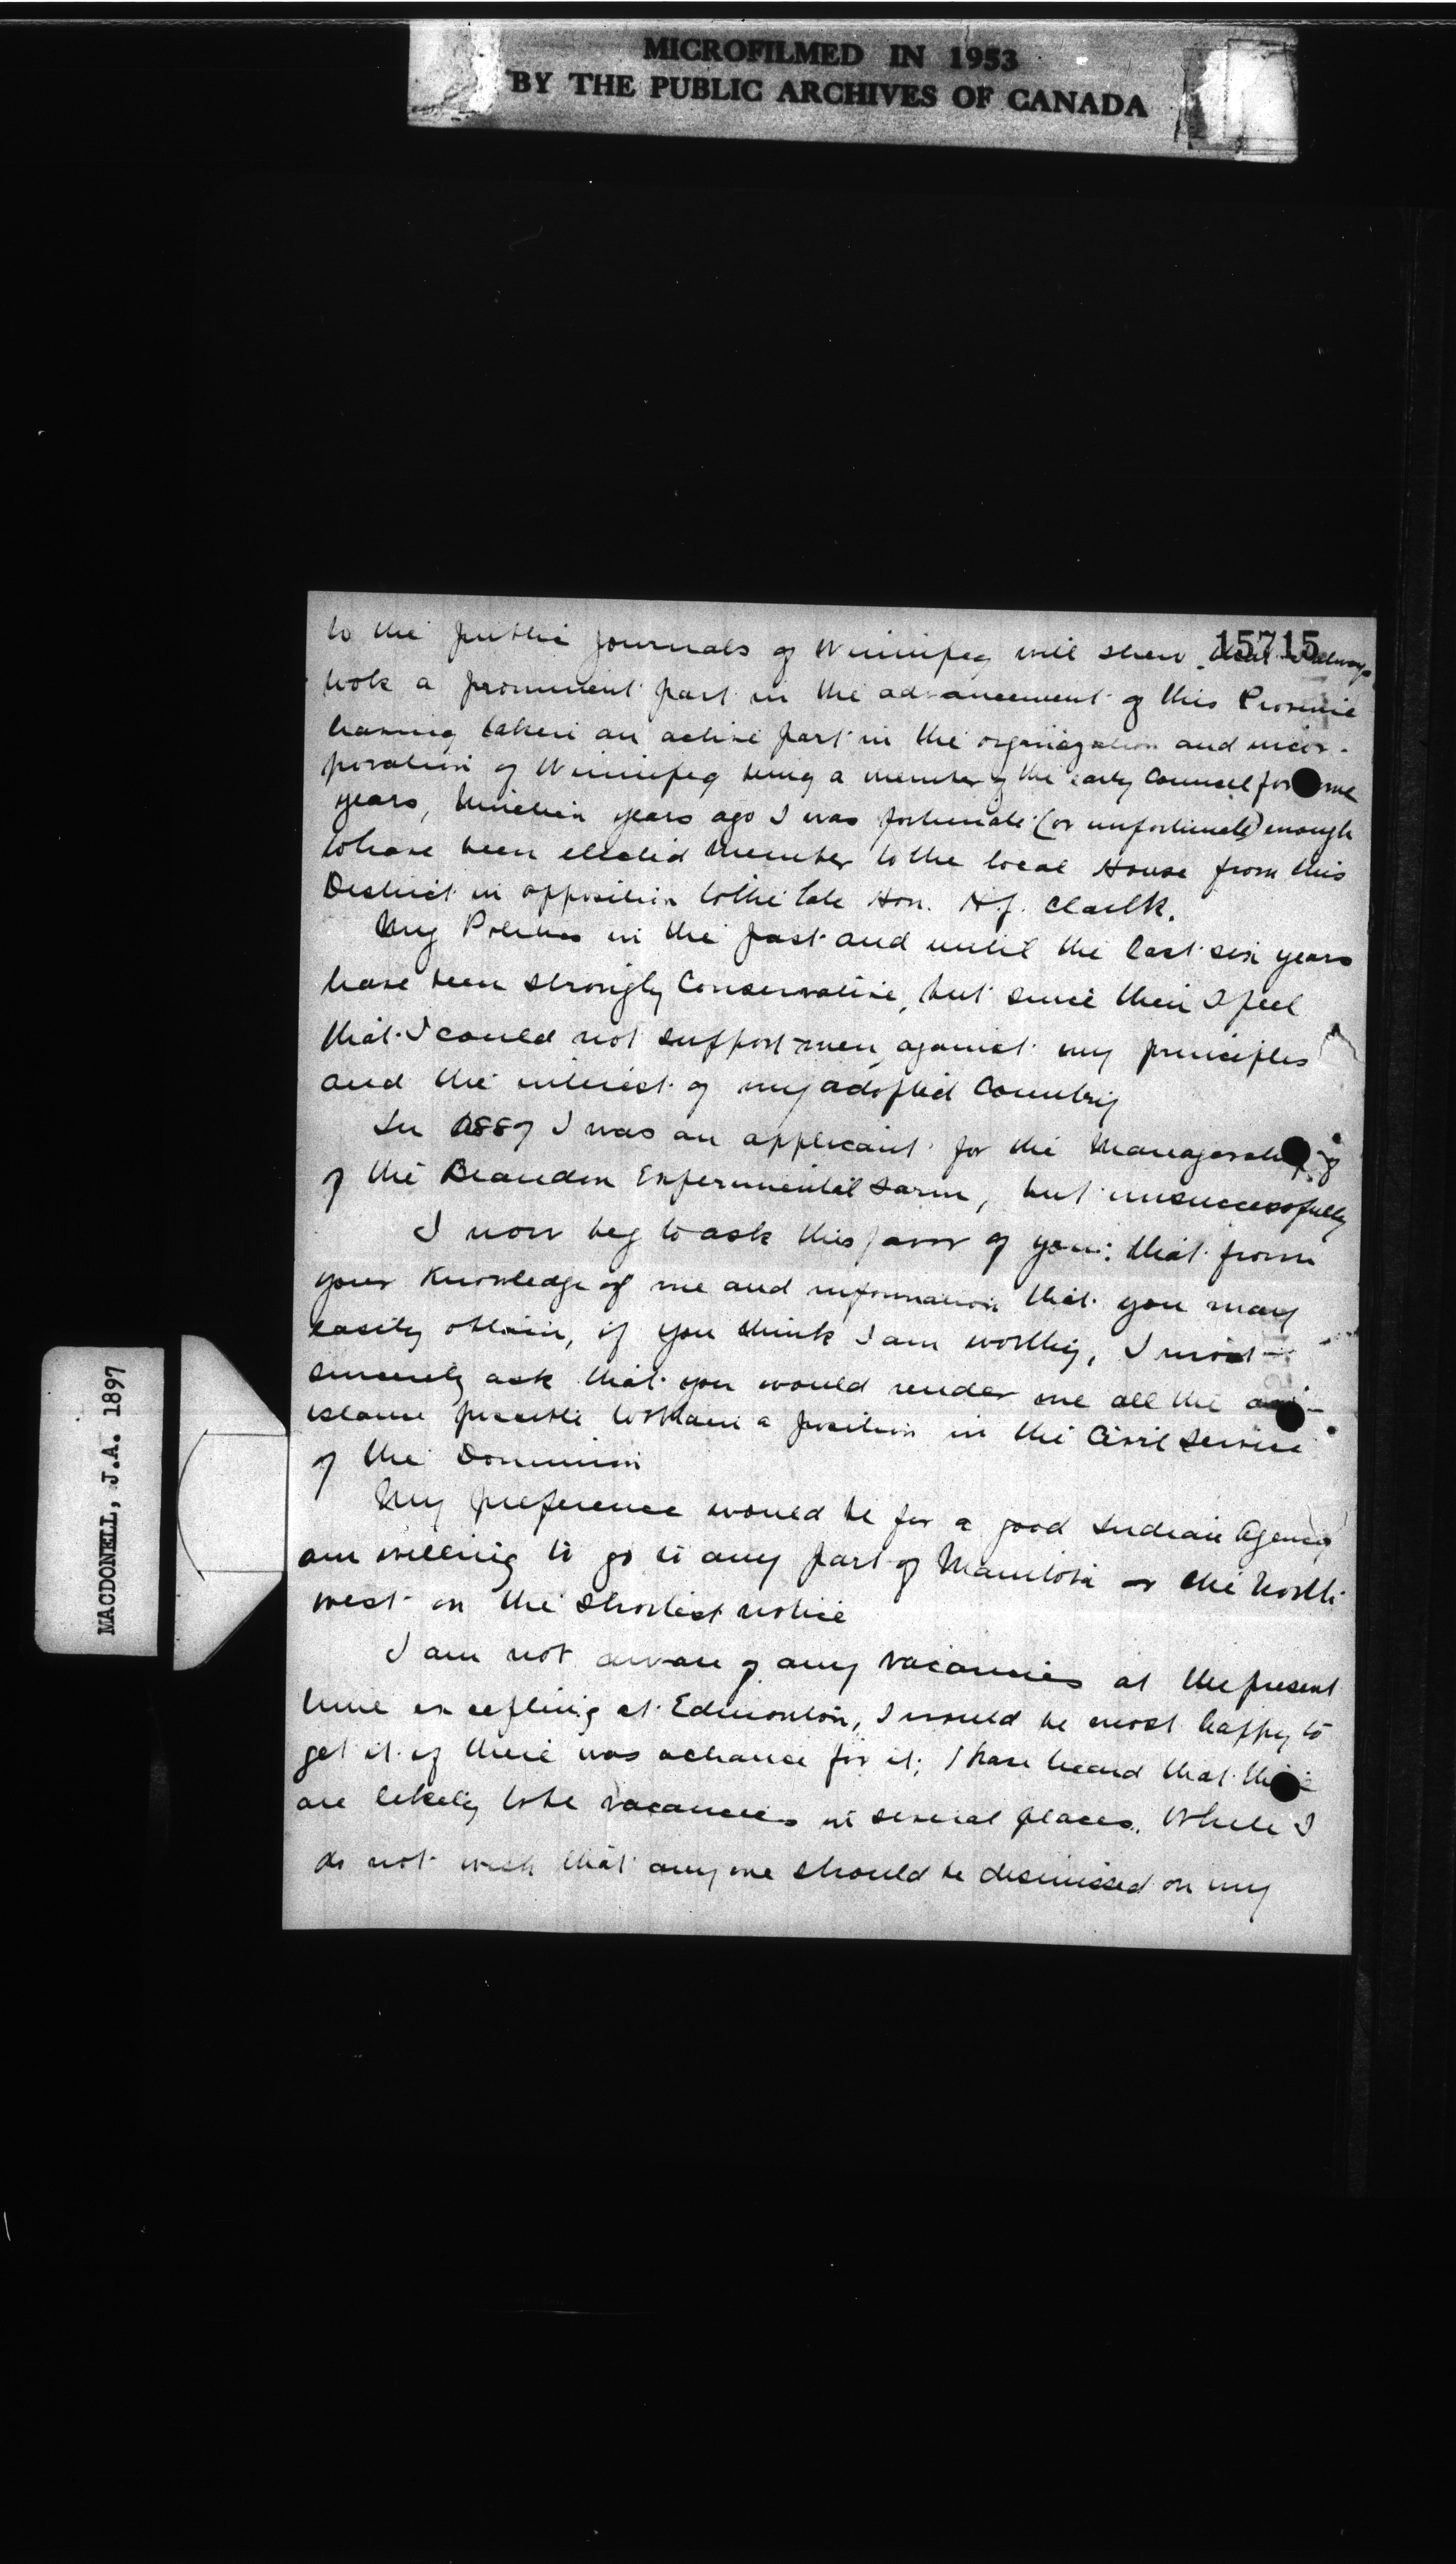 MICROFILMED IN 1953
BY THE PUBLIC ARCHIVES OF CANADA
15715
to the public journals of Winnipeg will shew that I always
took a prominent part in the advancement of this Province
having taken an active part in the organization and incor-
poration of Winnipeg being a member of the early Council for some
years, Nineteen years ago I was fortunate (or unfortunate) enough
to have been elected Member to the local House from this
District in opposition to the late Hon. H.J. Clarke.
My Politics in the past and until the last six years
have been strongly Conservative, but since then I feel
that I could not support men against my principles
and the interest of my adopted Country
In 1887 I was an applicant for the Managership of
of the Brandon Experimental Farm, but unsuccessfully
I now beg to ask this favor of you: that from
your Knowledge of me and information that you may
easily obtain, if you think I am worthy, I most
sincerely ask that you would render me all the ass-
istance possible to obtain a position in the Civil Service
of the Dominion
My preference would be for a good Indian Agency
am willing to go to any part of Manitoba or the North
west on the shortest notice
I am not aware of any vacancies at the present
time excepting at Edmonton, I would be most happy to
get it if there was a chance for it; I have heard that there
are likely to be vacancies in several places. While I
do not wish that any one should be dismissed on my
MACDONELL, J.A. 1897